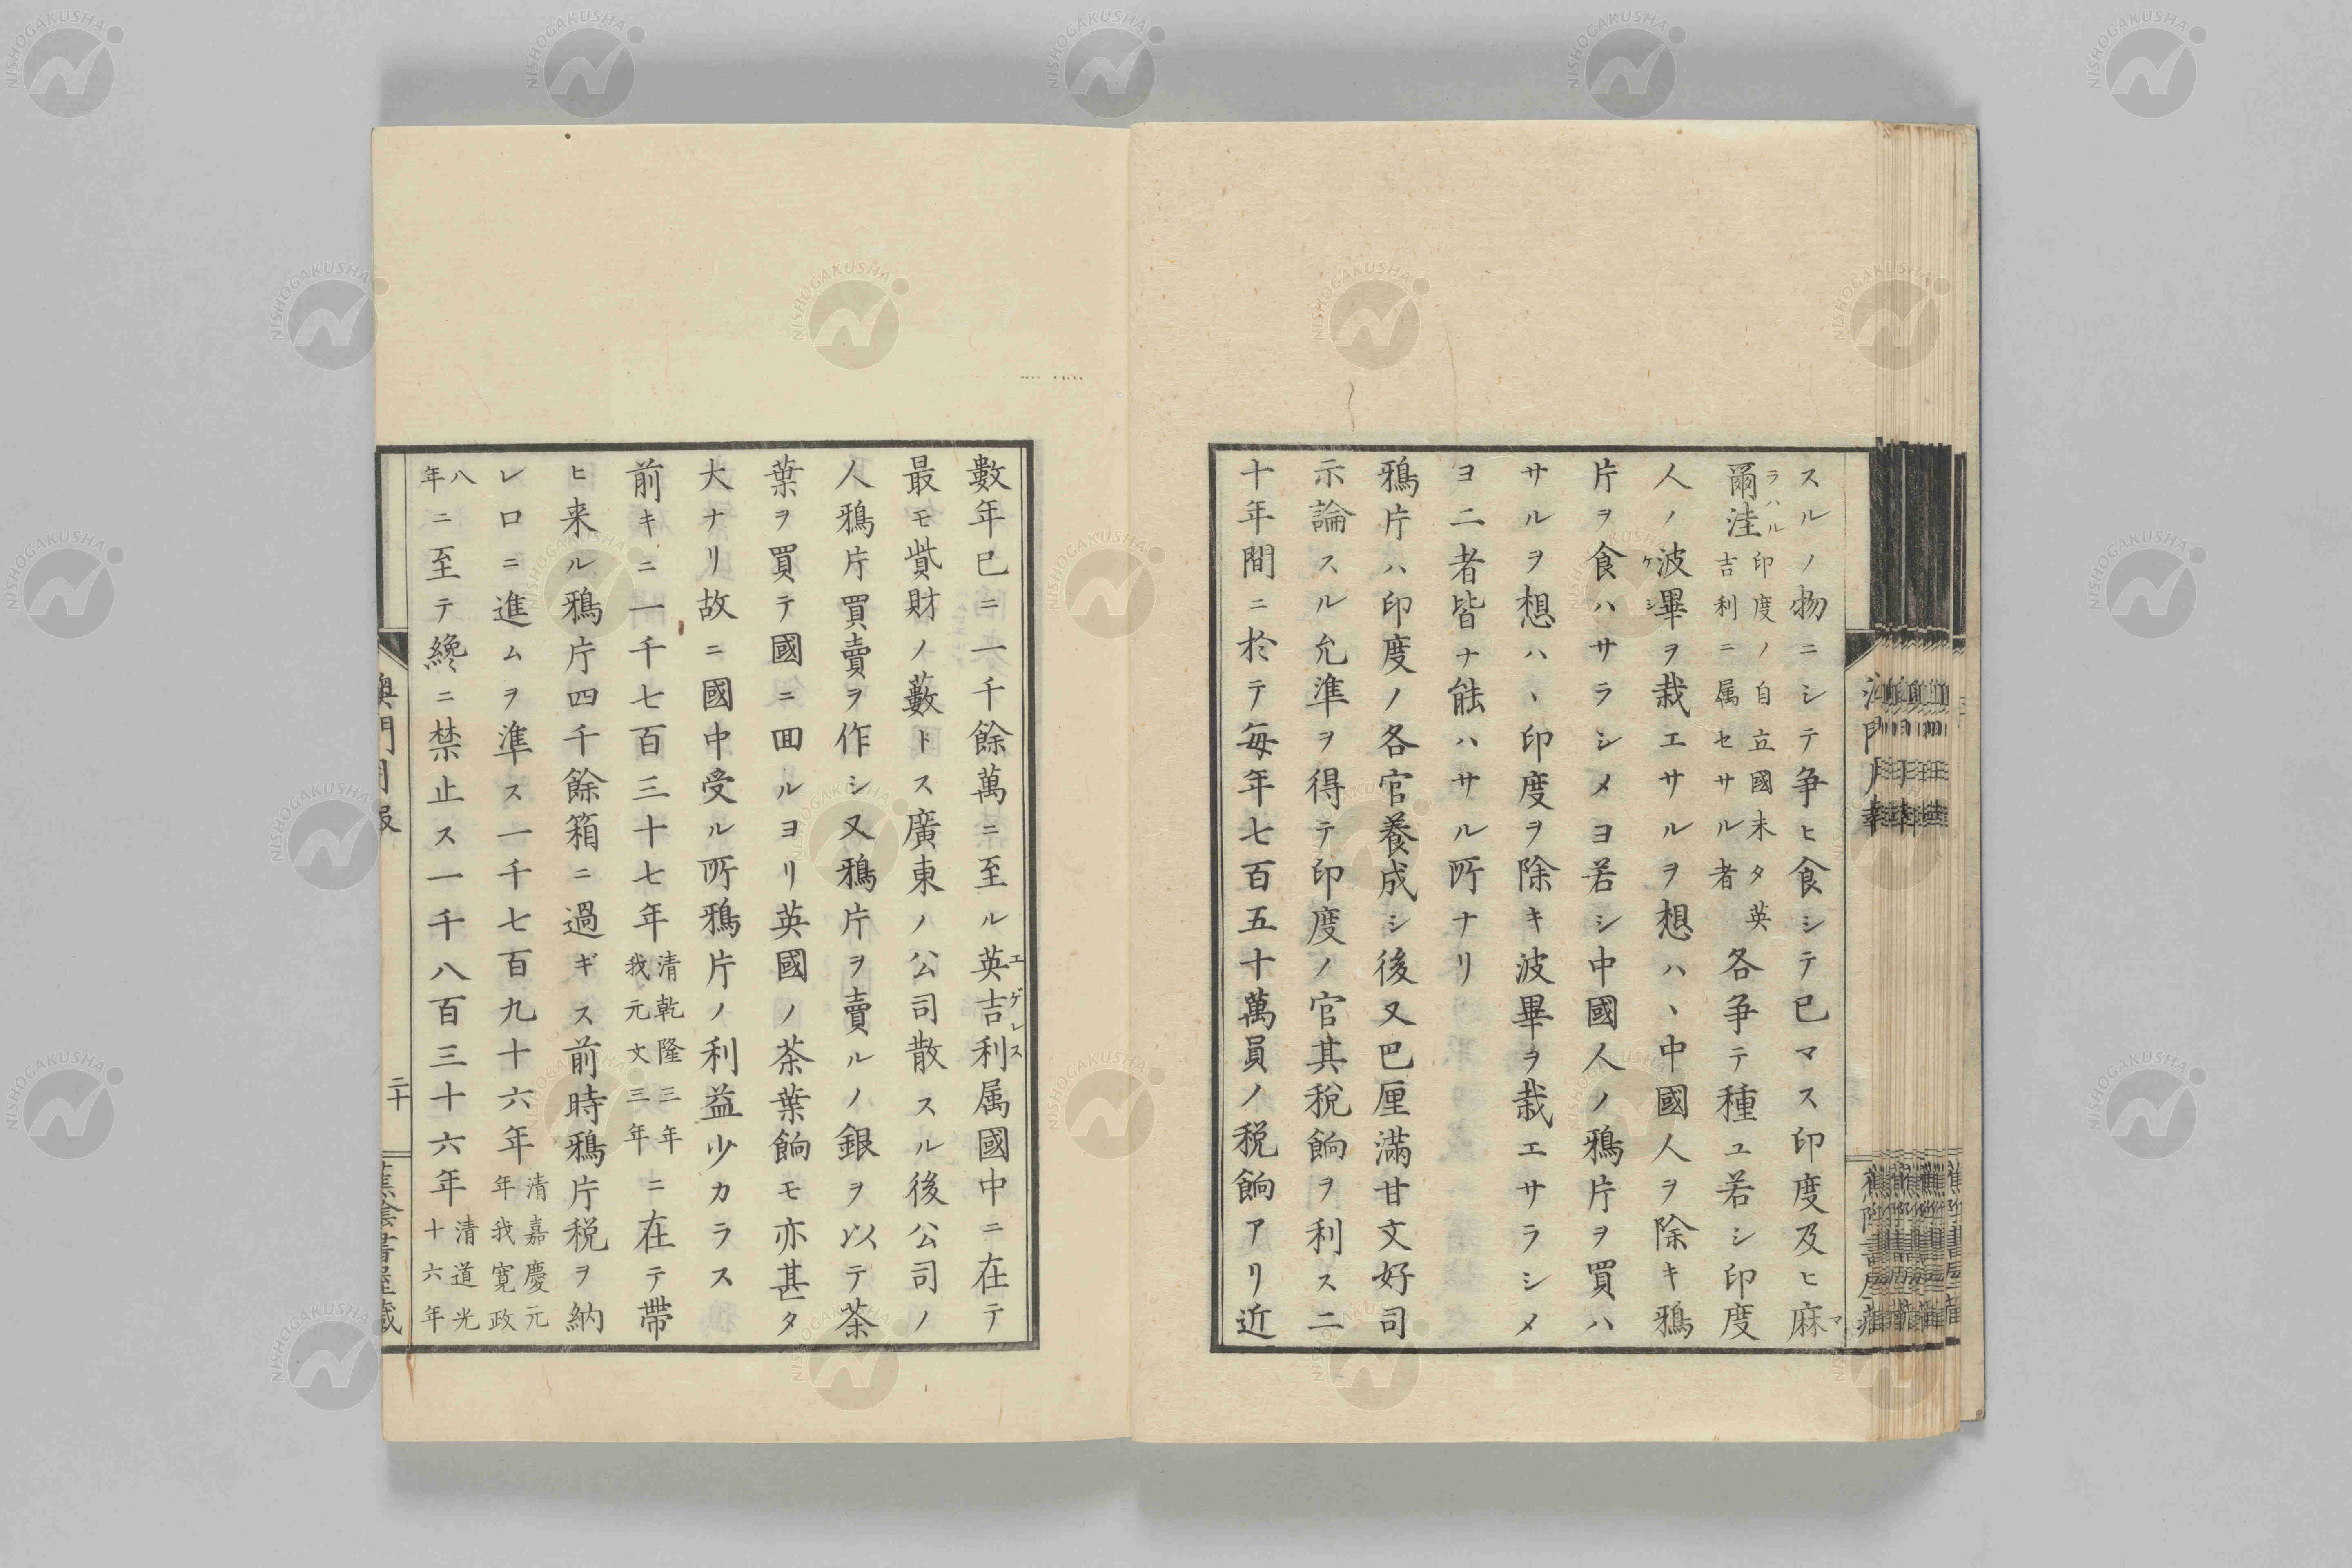 スルノ物ニシテ争ヒ食シテ已マス印度及ヒ麻マ
爾洼ラハル印度ノ自立國未タ英吉利ニ属セサル者各争テ種ユ若シ印度
人ノ波畢ケシヲ栽エサルヲ想ハヽ中國人ヲ除キ鴉
片ヲ食ハサラシメヨ若シ中國人ノ鴉片ヲ買ハ
サルヲ想ハヽ印度ヲ除キ波畢ヲ栽エサラシメ
ヨ二者皆ナ能ハサル所ナリ
鴉片ハ印度ノ各官養成シ後又巴厘滿甘文好司
示論スル允準ヲ得テ印度ノ官其税餉ヲ利ス二
十年間ニ於テ毎年七百五十萬員ノ税餉アリ近
數年已ニ一千餘萬ニ至ル英吉利エゲレス属國中ニ在テ
最モ貲財ノ藪トス廣東ノ公司散スル後公司ノ
人鴉片買賣ヲ作シ又鴉片ヲ賣ルノ銀ヲ以テ茶
葉ヲ買テ國ニ囬ルヨリ英國ノ茶葉餉モ亦甚タ
大ナリ故ニ國中受ル所鴉片ノ利益少カラス
前キニ一千七百三十七年清乾隆三年我元文三年ニ在テ帶
ヒ来ル鴉片四千餘箱ニ過ギス前時鴉片税ヲ納
レロニ進ムヲ準ス一千七百九十六年清嘉慶元年我寛政
八年ニ至テ纔ニ禁止ス一千八百三十六年清道光十六年
澳門月報
二十
蕉陰書屋藏